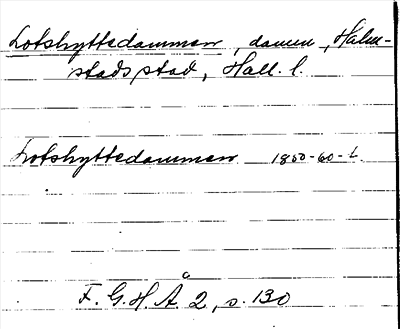 Lotshyttedammen, damm, Halm-
stads stad, Hall. l.
Lotshyttedammen 1800-60-t.
F. G. H. Å. 2, s. 130